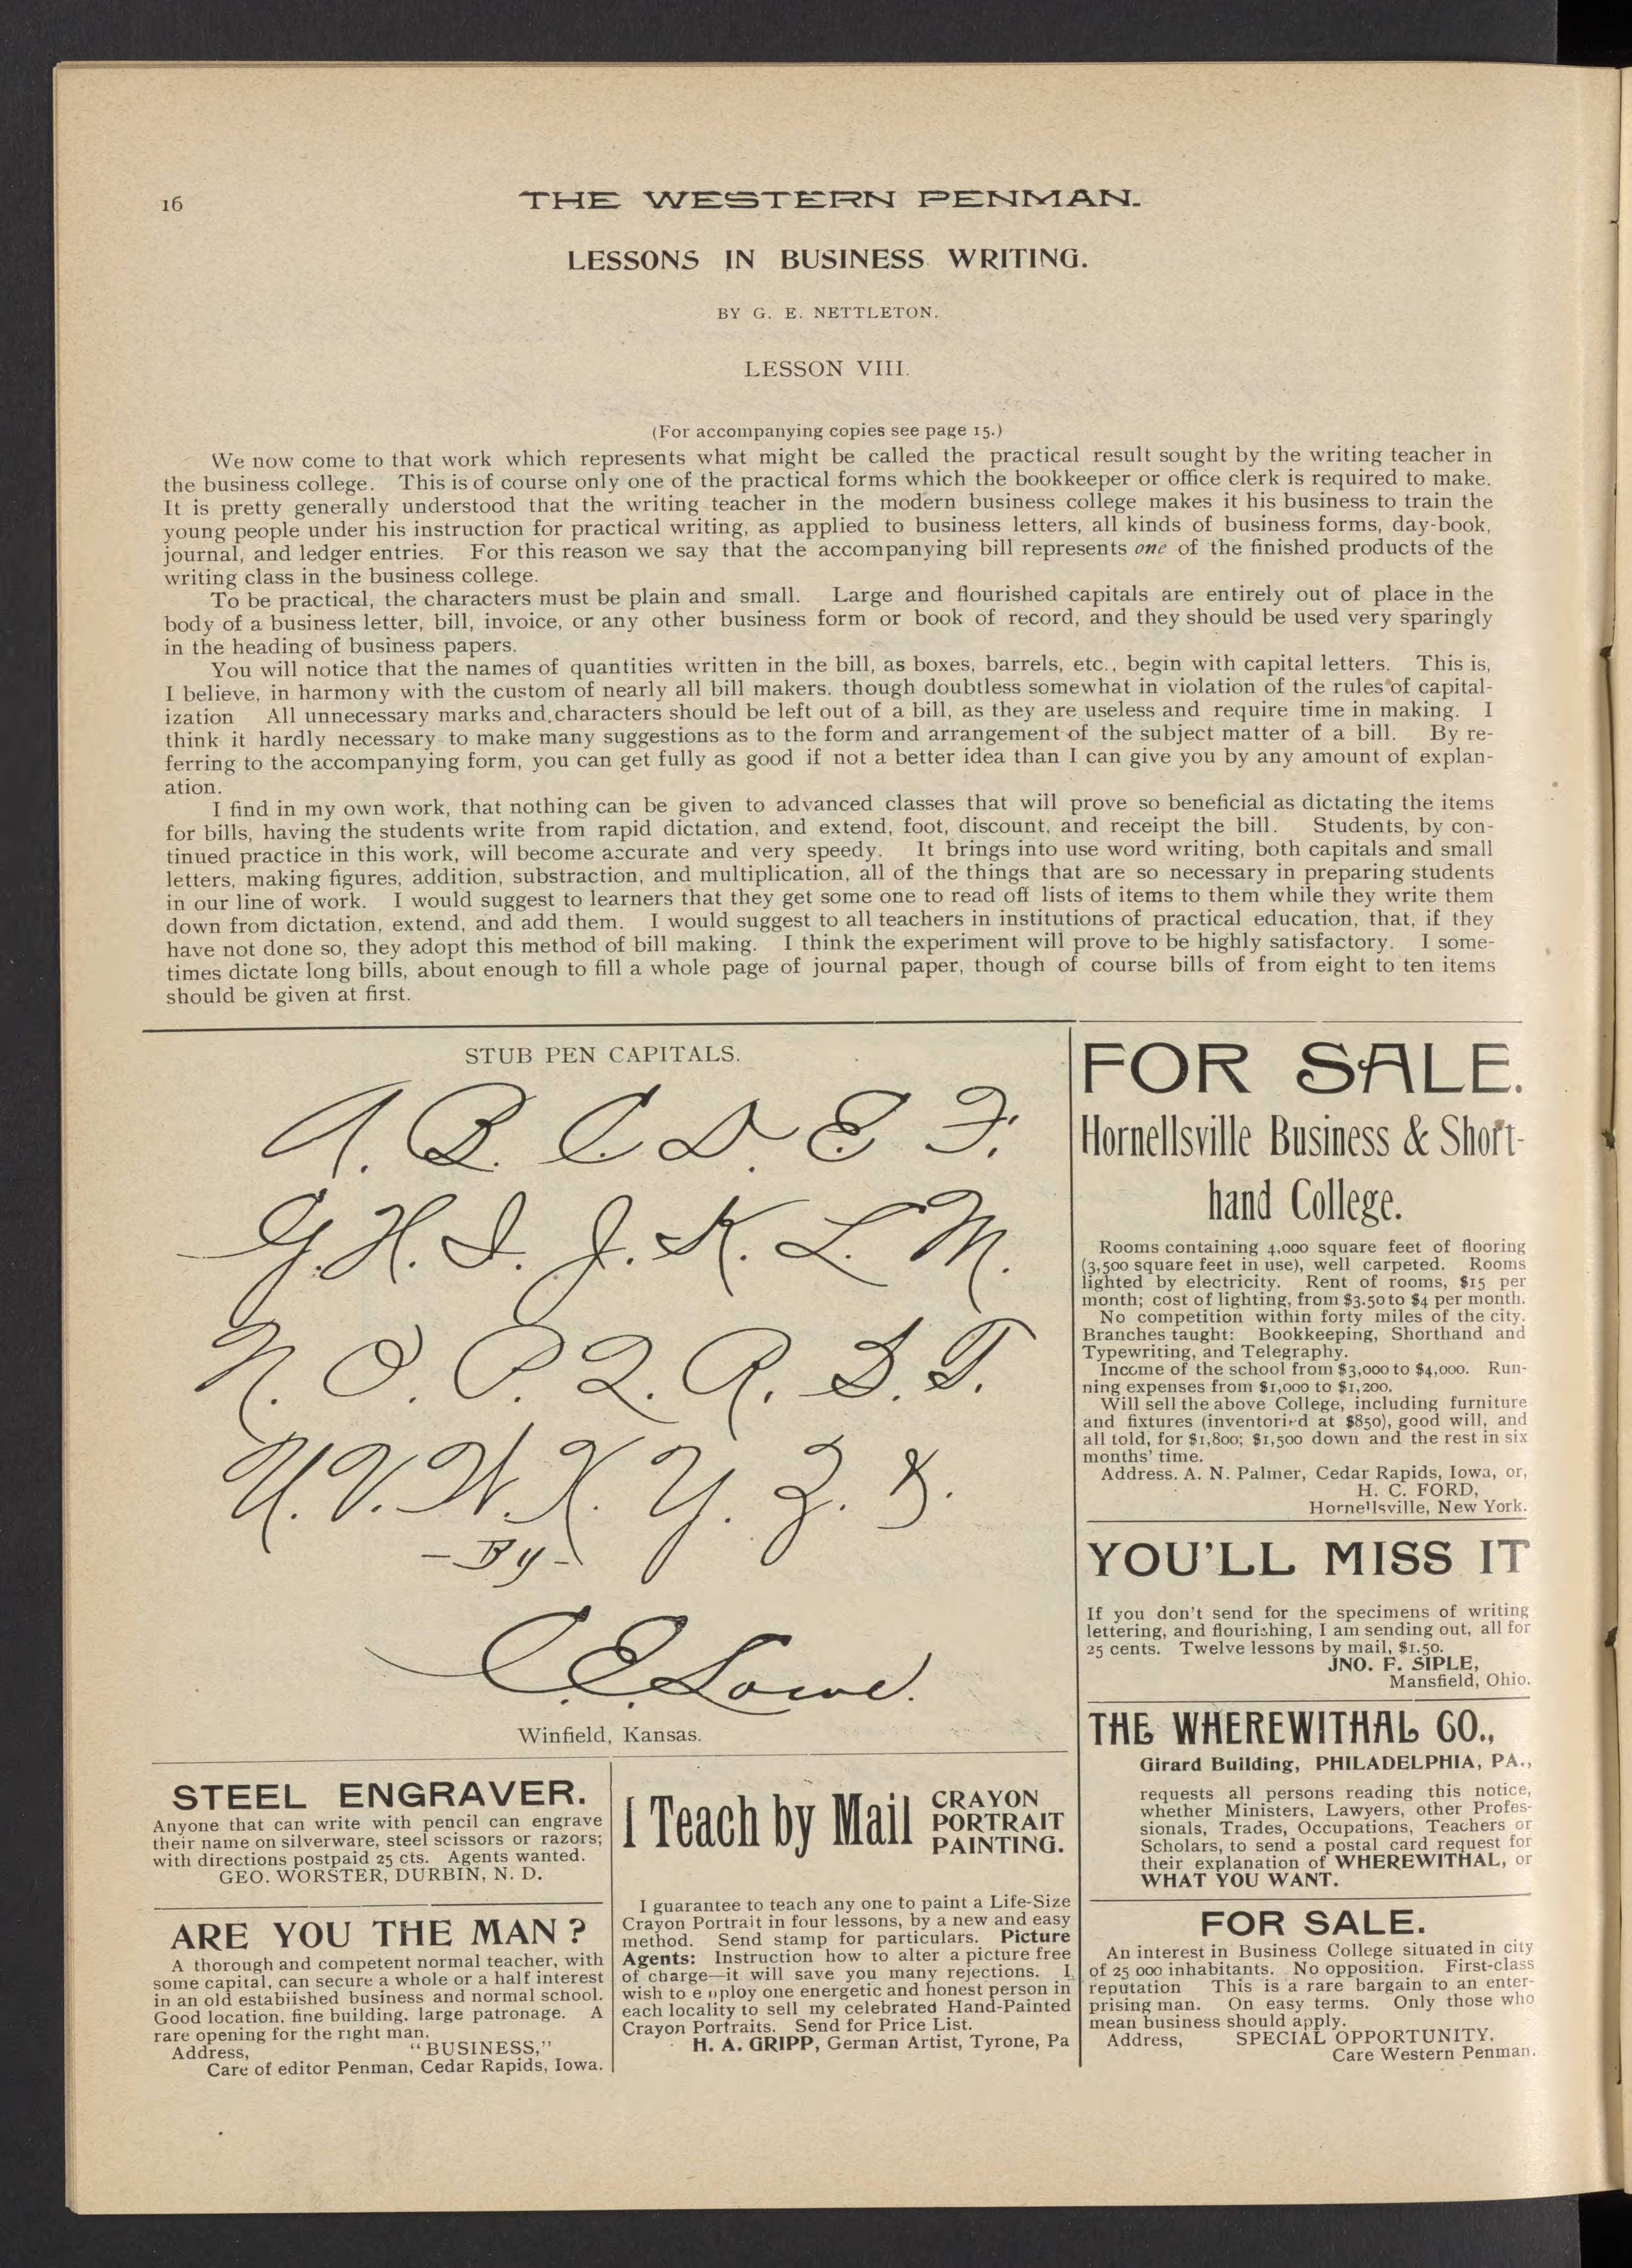 16
THE WESTERN PENMAN.
LESSONS IN BUSINESS WRITING.
BY G. E. NETTLETON.
LESSON VIII.
(For accompanying copies see page 15.)
We now come to that work which represents what might be called the practical result sought by the writing teacher in
the business college. This is of course only one of the practical forms which the bookkeeper or office clerk is required to make.
It is pretty generally understood that the writing teacher in the modern business college makes it his business to train the
young people under his instruction for practical writing, as applied to business letters, all kinds of business forms, day-book,
journal, and ledger entries. For this reason we say that the accompanying bill represents one of the finished products of the
writing class in the business college.
To be practical, the characters must be plain and small. Large and flourished capitals are entirely out of place in the
body of a business letter, bill, invoice, or any other business form or book of record, and they should be used very sparingly
in the heading of business papers.
You will notice that the names of quantities written in the bill, as boxes, barrels, etc., begin with capital letters. This is,
I believe, in harmony with the custom of nearly all bill makers. though doubtless somewhat in violation of the rules of capital-
ization All unnecessary marks and characters should be left out of a bill, as they are useless and require time in making. I
think it hardly necessary to make many suggestions as to the form and arrangement of the subject matter of a bill. By re-
ferring to the accompanying form, you can get fully as good if not a better idea than I can give you by any amount of explan-
ation.
I find in my own work, that nothing can be given to advanced classes that will prove so beneficial as dictating the items
for bills, having the students write from rapid dictation, and extend, foot, discount, and receipt the bill. Students, by con-
tinued practice in this work, will become accurate and very speedy. It brings into use word writing, both capitals and small
letters, making figures, addition, substraction, and multiplication, all of the things that are so necessary in preparing students
in our line of work. I would suggest to learners that they get some one to read off lists of items to them while they write them
down from dictation, extend, and add them. I would suggest to all teachers in institutions of practical education, that, if they
have not done so, they adopt this method of bill making. I think the experiment will prove to be highly satisfactory. I some-
times dictate long bills, about enough to fill a whole page of journal paper, though of course bills of from eight to ten items
should be given at first.
STUB PEN CAPITALS.
A. B. C. D. E F.
G. H. I. J. K. L. M.
N. O. P. Q. R. S. T.
U. V. W. X. Y. Z. &.
- By -
C. E. Lowe.
Winfield, Kansas.
FOR SALE.
Hornellsville Business & Short-
hand College.
Rooms containing 4,000 square feet of flooring
(3,500 square feet in use), well carpeted. Rooms
lighted by electricity. Rent of rooms, $15 per
month; cost of lighting, from $3.50 to $4 per month.
No competition within forty miles of the city.
Branches taught: Bookkeeping, Shorthand and
Typewriting, and Telegraphy.
Income of the school from $3,000 to $4,000. Run-
ning expenses from $1,000 to $1,200.
Will sell the above College, including furniture
and fixtures (inventoried at $850), good will, and
all told, for $1,800; $1,500 down and the rest in six
months' time.
Address. A. N. Palmer, Cedar Rapids, Iowa, or,
H. C. FORD,
Hornellsville, New York.
YOU'LL MISS IT
If you don't send for the specimens of writing
lettering, and flourishing, I am sending out, all for
25 cents. Twelve lessons by mail, $1.50.
JNO. F. SIPLE,
Mansfield, Ohio.
THE WHEREWITHAL CO.,
Girard Building, PHILADELPHIA, PA.,
requests all persons reading this notice,
whether Ministers, Lawyers, other Profes-
sionals, Trades, Occupations, Teachers or
Scholars, to send a postal card request for
their explanation of WHEREWITHAL, or
WHAT YOU WANT.
FOR SALE.
An interest in Business College situated in city
of 25 000 inhabitants. No opposition. First-class
reputation This is a rare bargain to an enter-
prising man. On easy terms. Only those who
mean business should apply.
Address, SPECIAL OPPORTUNITY.
Care Western Penman.
STEEL ENGRAVER.
Anyone that can write with pencil can engrave
their name on silverware, steel scissors or razors;
with directions postpaid 25 cts. Agents wanted.
GEO. WORSTER, DURBIN, N. D.
ARE YOU THE MAN?
A thorough and competent normal teacher, with
some capital, can secure a whole or a half interest
in an old estabiished business and normal school.
Good location, fine building, large patronage. A
rare opening for the right man.
Address, "BUSINESS,"
Care of editor Penman, Cedar Rapids, Iowa.
I Teach by Mail CRAYON
PORTRAIT
PAINTING.
I guarantee to teach any one to paint a Life-Size
Crayon Portrait in four lessons, by a new and easy
method. Send stamp for particulars. Picture
Agents: Instruction how to alter a picture free
of charge—it will save you many rejections. I
wish to employ one energetic and honest person in
each locality to sell my celebrated Hand-Painted
Crayon Portraits. Send for Price List.
H. A. GRIPP, German Artist, Tyrone, Pa